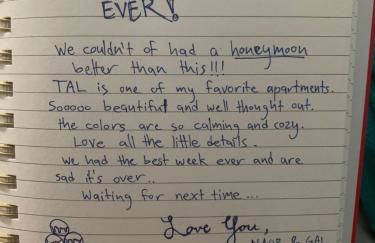 EVER!
We couldn't of had a honeymoon
better than this!!!
TAL is one of my favorite apartments.
Sooooo beautiful and well thought out.
the colors are so calming and cozy.
Love all the little details.
We had the best week ever and are
sad it's over..
Waiting for next time...
Love You,